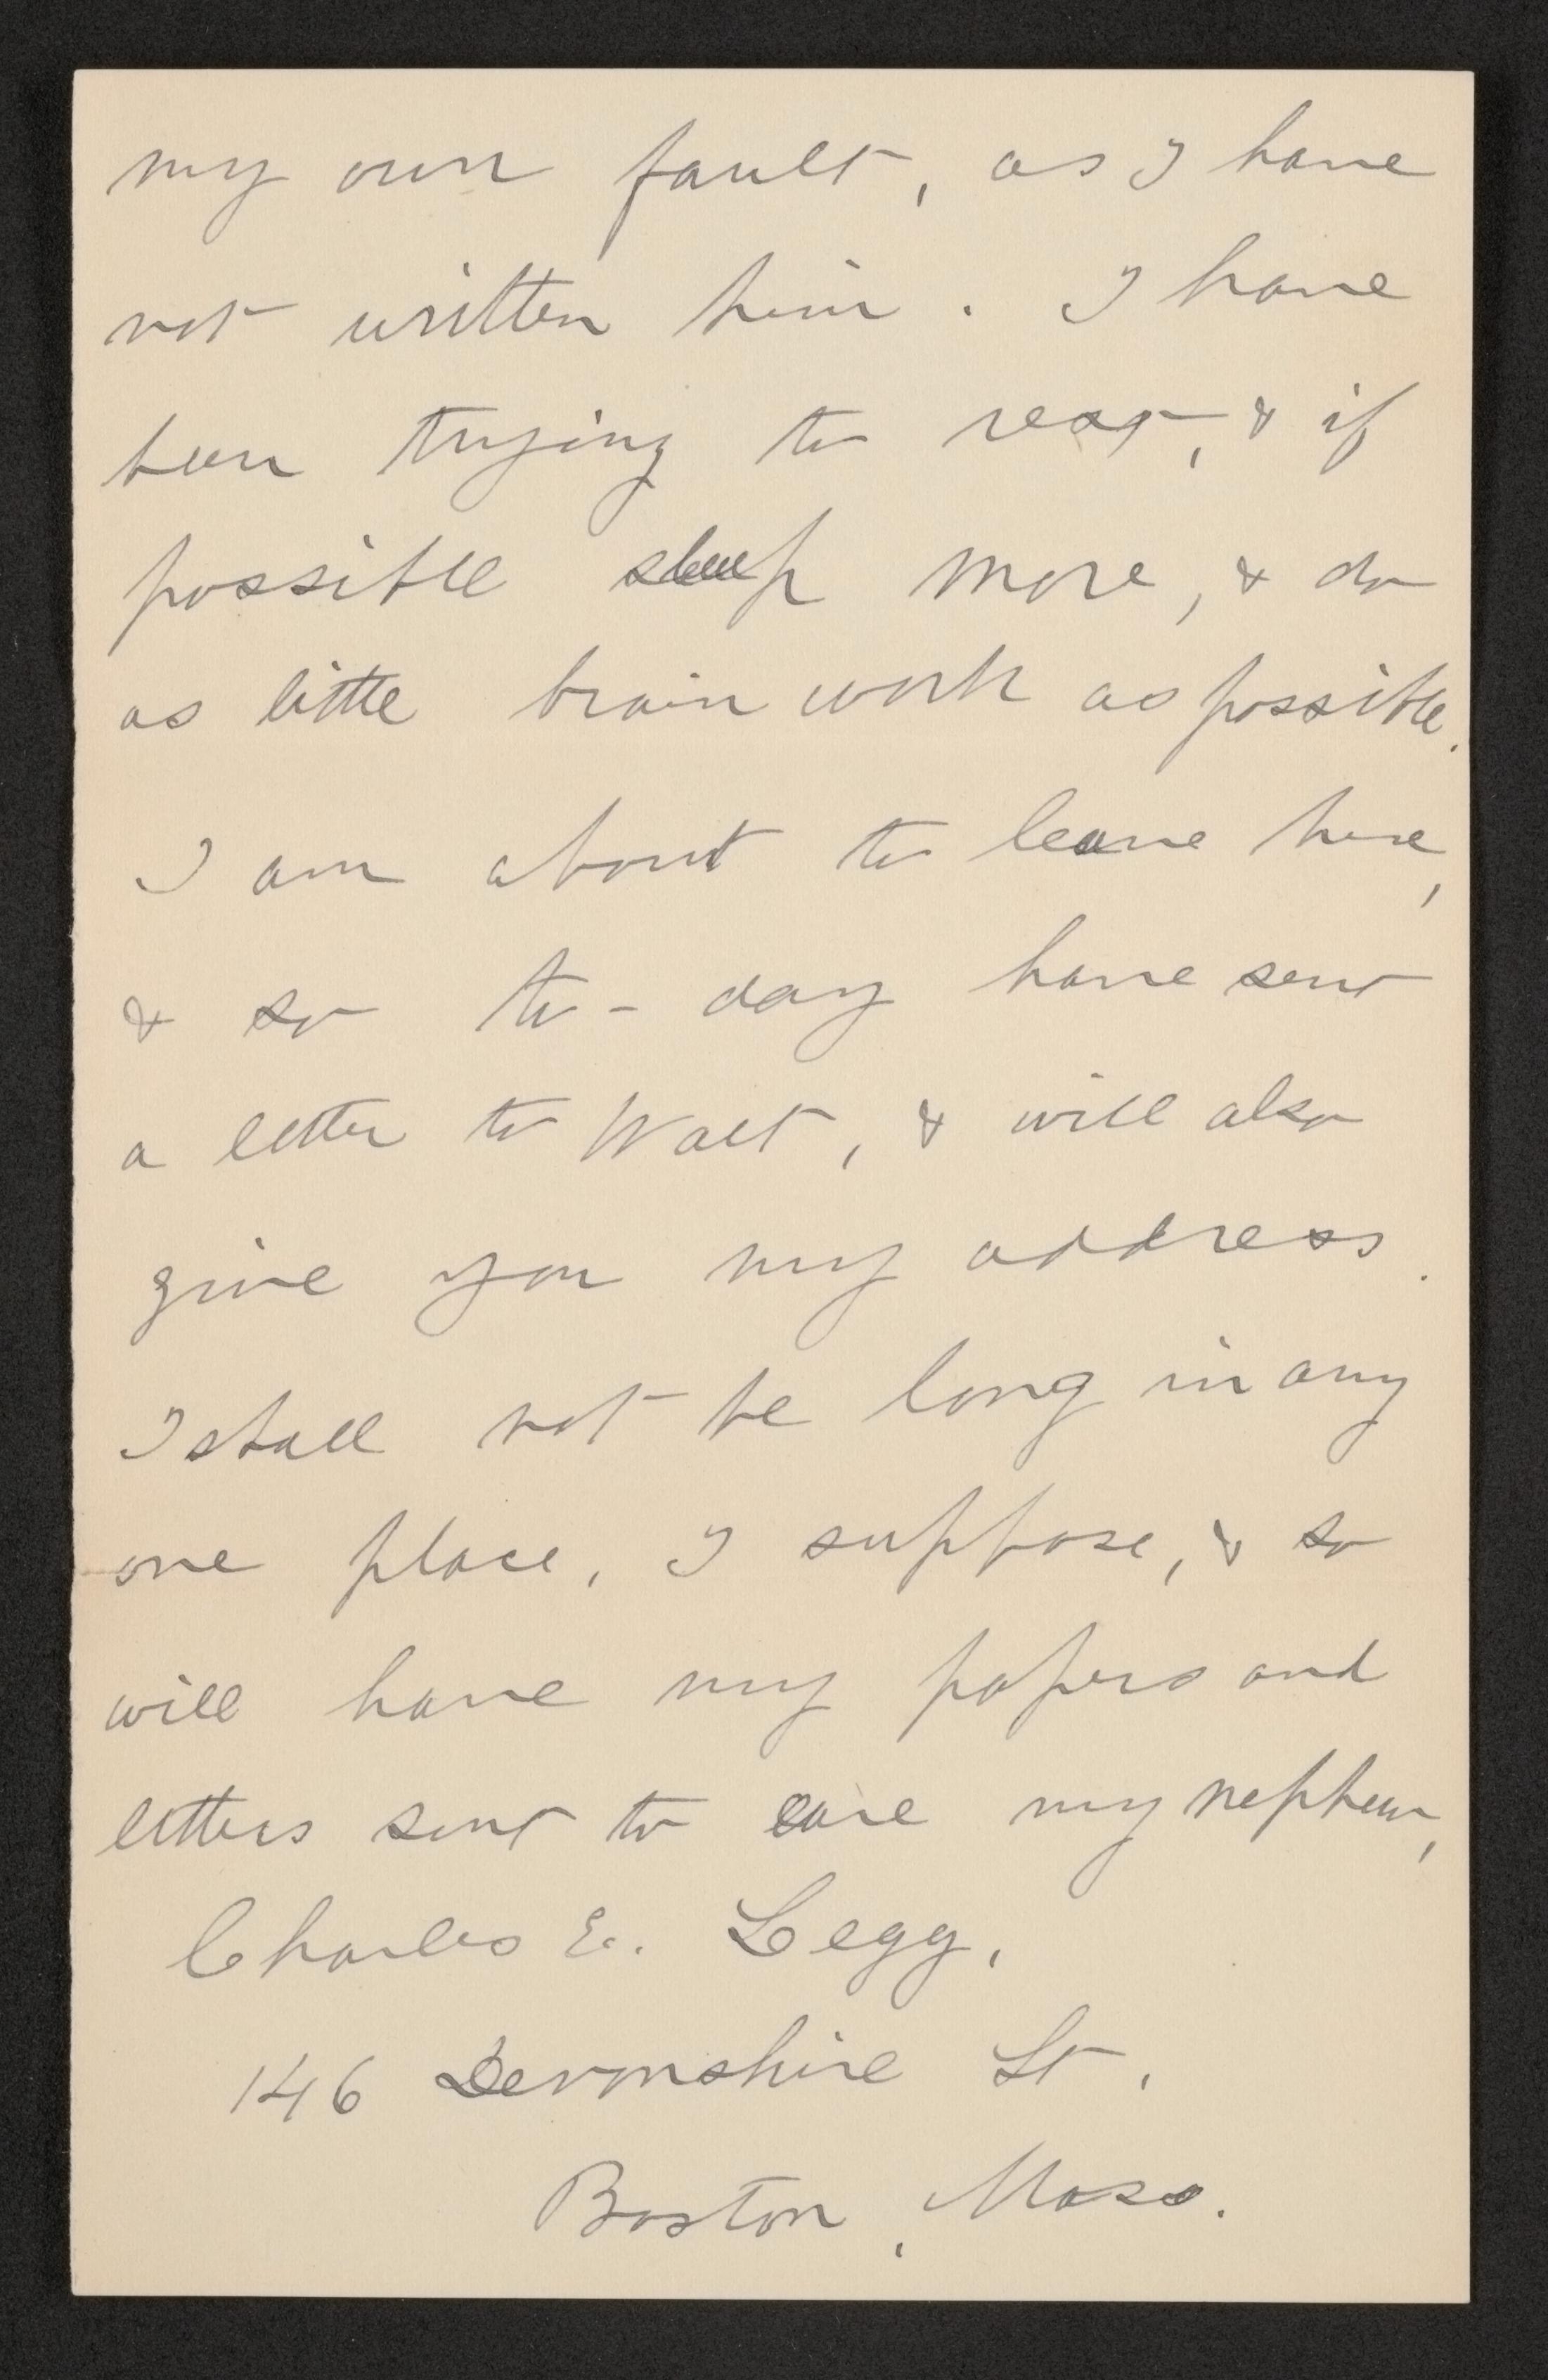 my own fault, as I have
not written him. I have
been trying to rest, & if
possible sleep more, & do
as little brain work as possible.
I am about to leave here,
& so to-day have sent
a letter to Walt, & will also
give you my address.
I shall not be long in any
one place, I suppose, & so
will have my papers and
letters sent to care my nephew,
Charles E. Legg,
146 Devonshire St,
Boston, Mass.